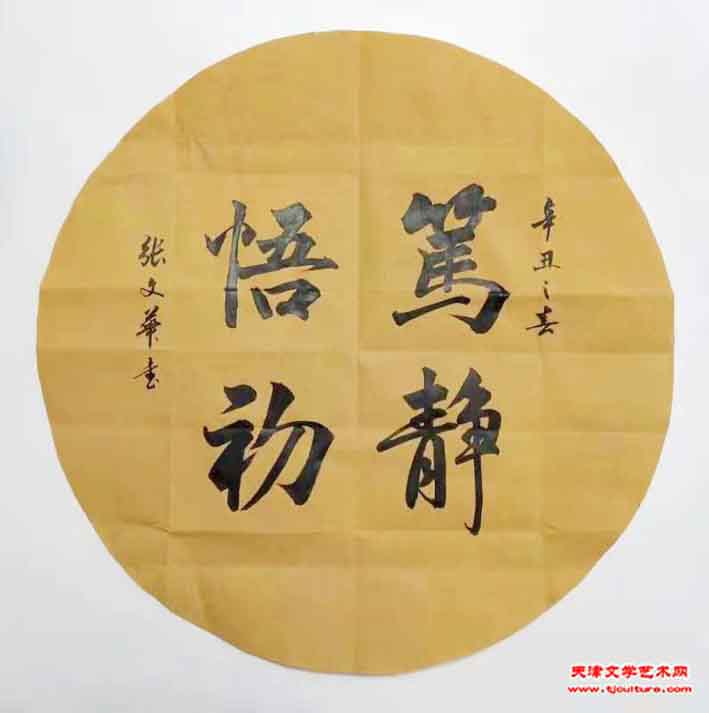 辛丑之春
篤静
悟初
张文華书
天津文学艺术网
www.tjculture.com